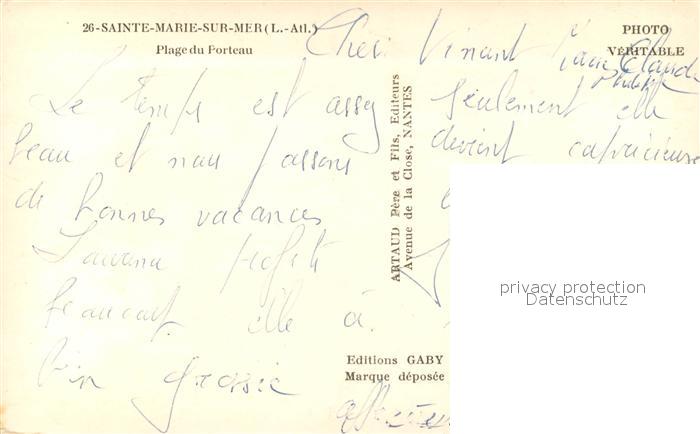 26-SAINTE-MARIE-SUR-MER (L.-Atl.)
Plage du Porteau
PHOTO
VÉRITABLE
Cher Vincent Jean Claude
Philippe
Le temps est assez
beau et nous passons
de bonnes vacances
profite
beaucoup elle à
bien grossie
seulement elle
devient capricieuse
ARTAUD Père et Fils, Editeurs
Avenue de la Close, NANTES
Editions GABY
Marque déposée
privacy protection
Datenschutz